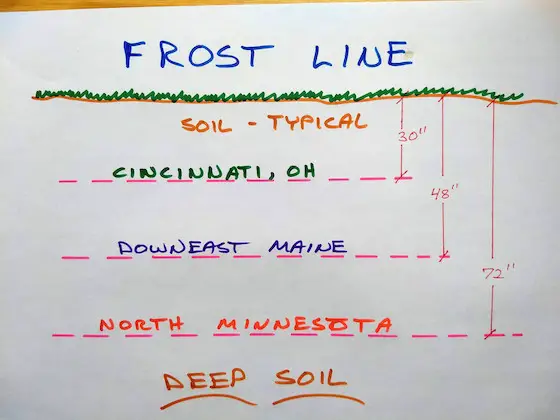 FROST LINE
SOIL - TYPICAL
30"
CINCINNATI, OH
48"
DOWNEAST MAINE
72"
NORTH MINNESOTA
DEEP SOIL